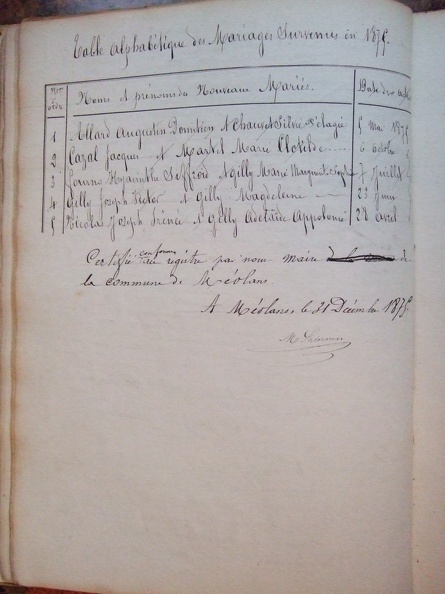 Table alphabétique des Mariages Survenus en 1875.
Nos d'ordre Noms et prénoms des Nouveaux Mariés. Date des
1 Allard Augustin Donatien et Chauvet Silvie Pélagie 5 Mai 1875
2 Cazal Jacques et Martel Marie Clotilde 6 Octobre
3 Hyacinthe et Gilly Marie 7 Juillet
4 Gilly Joseph Victor et Gilly Magdeleine 23 Juin
5 Nicolas Joseph Irénée et Gilly Adelaïde Appolonie 28 Avril
Certifié conforme au registre par nous maire de
la commune de Méolans
A Méolans, le 31 Décembre 1875.